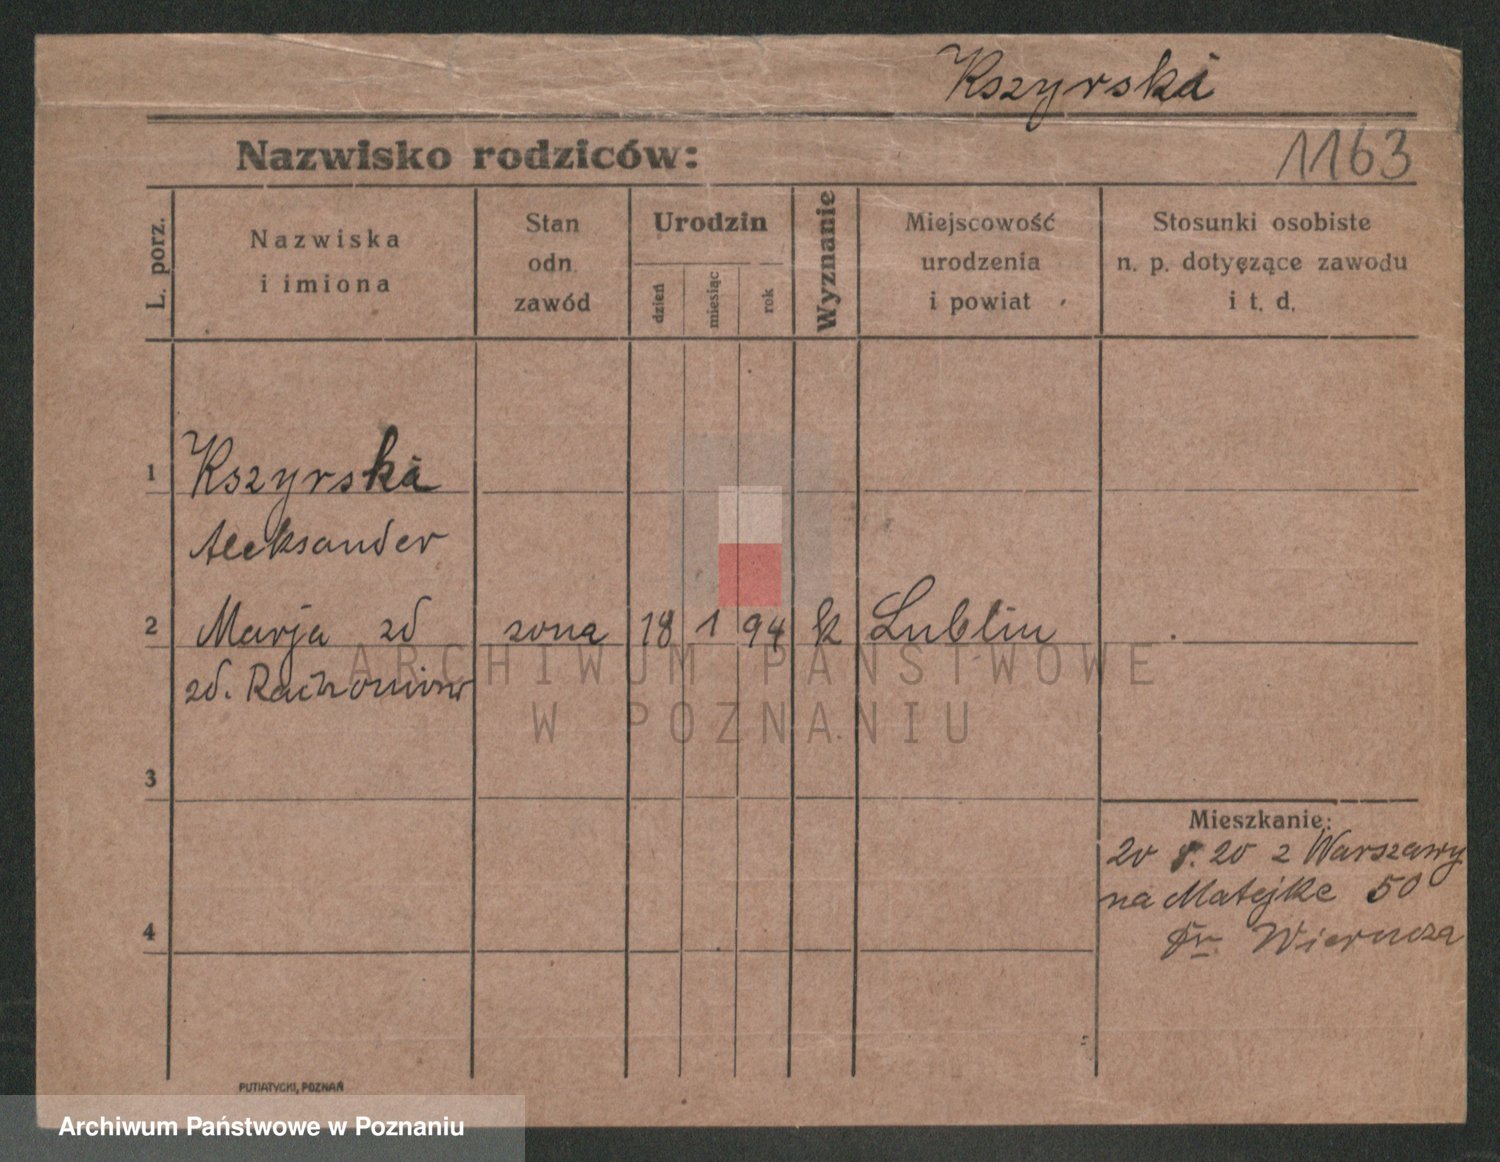 Kszyrska
Nazwisko rodziców:
1163
L. porz.
Nazwiska
i imiona
Stan
odn.
zawód
Urodzin
dzień
miesiąc
rok
Wyznanie
Miejscowość
urodzenia
i powiat
Stosunki osobiste
n. p. dotyczące zawodu
i t. d.
1
Kszyrska
Aleksander
2 Marja zd żona 18 1 94 k Lublin
zd.
ARCHIWUM PAŃSTWOWE
W POZNANIU
3
Mieszkanie:
20 20 z Warszawy
na Matejke 50
4
PUTIATYCKI, POZNAŃ
Archiwum Państwowe w Poznaniu